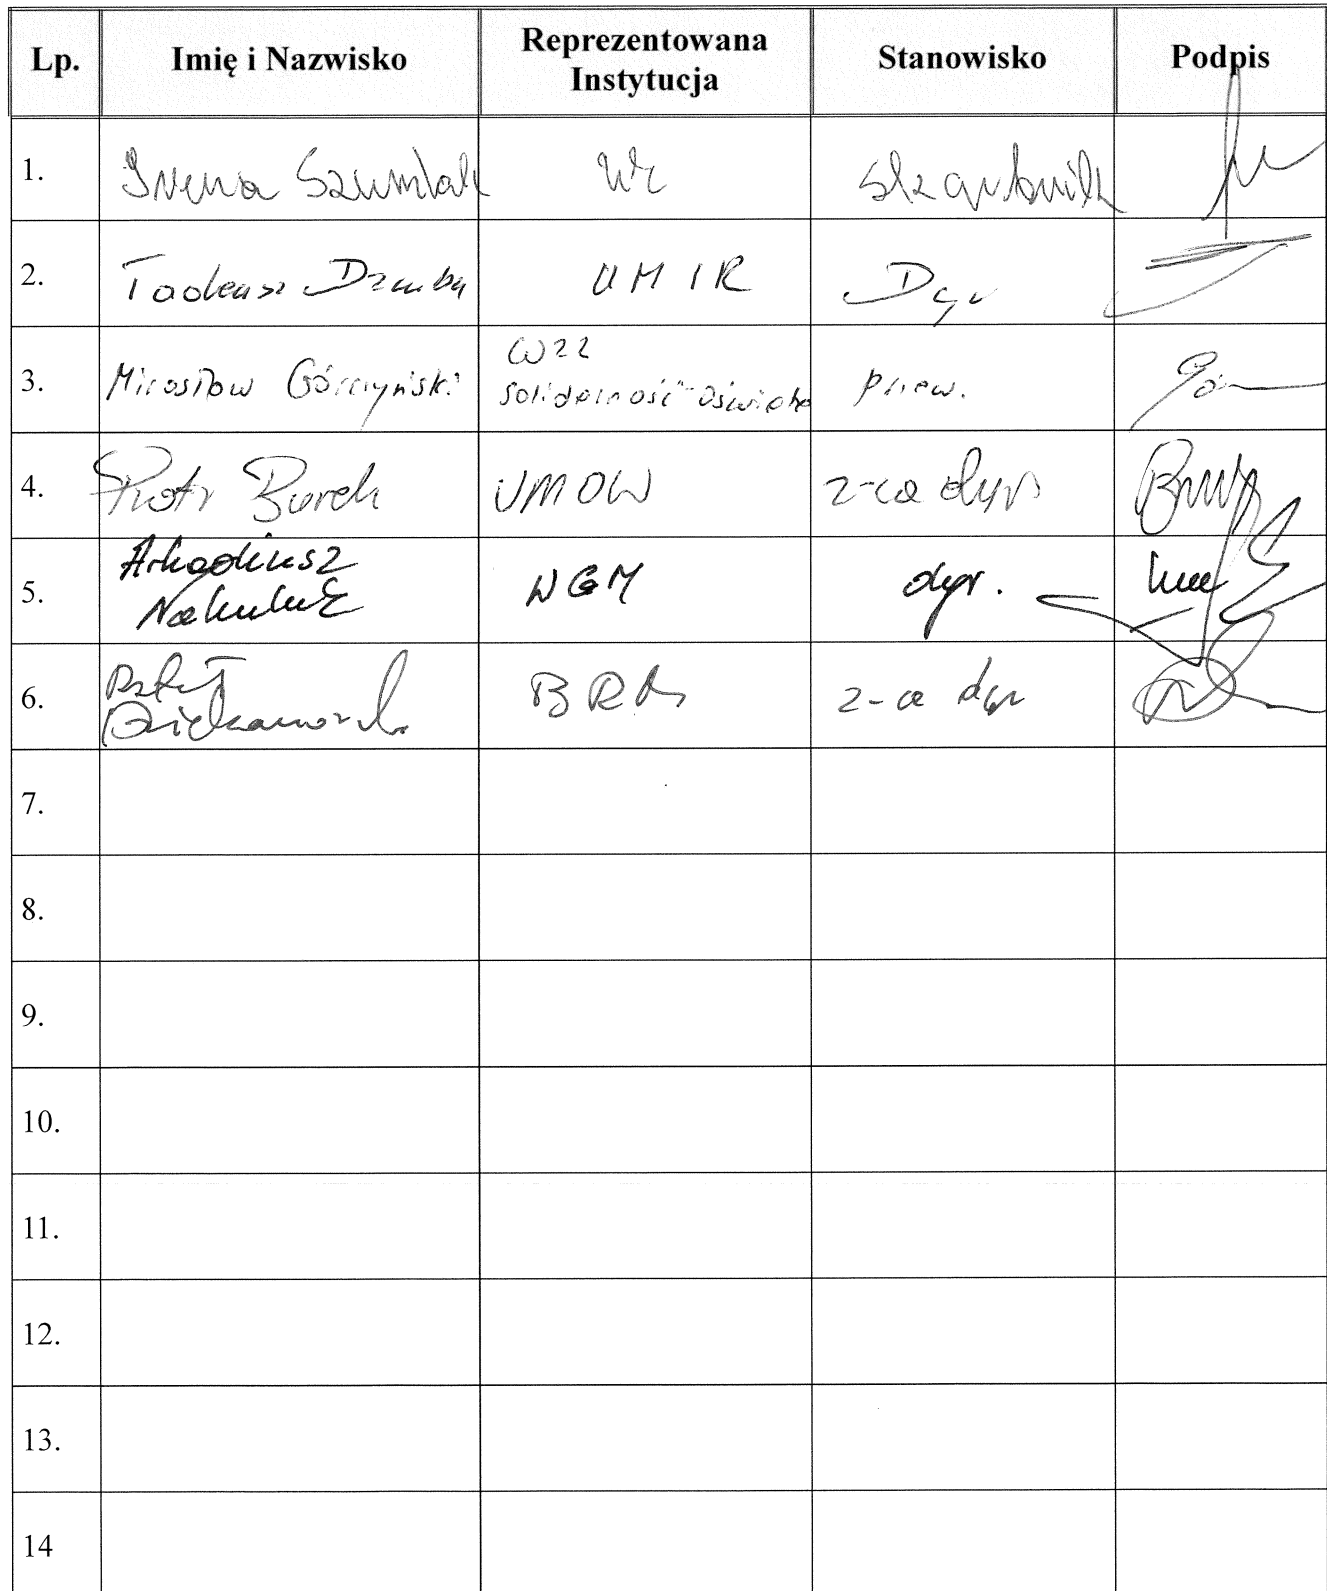 Lp. Imię i Nazwisko Reprezentowana Instytucja Stanowisko Podpis
1. Irena Szumlak skarbnik
2. Tadeusz Dziuba UMIR Dyr
3. Mirosław Górczyński WZZ "Solidarność-Oświata" przew.
4. Piotr Burek UMOW z-ca dyr
5. Arkadiusz WGM dyr.
6. Rafał BRM z-ca dyr
7.
8.
9.
10.
11.
12.
13.
14